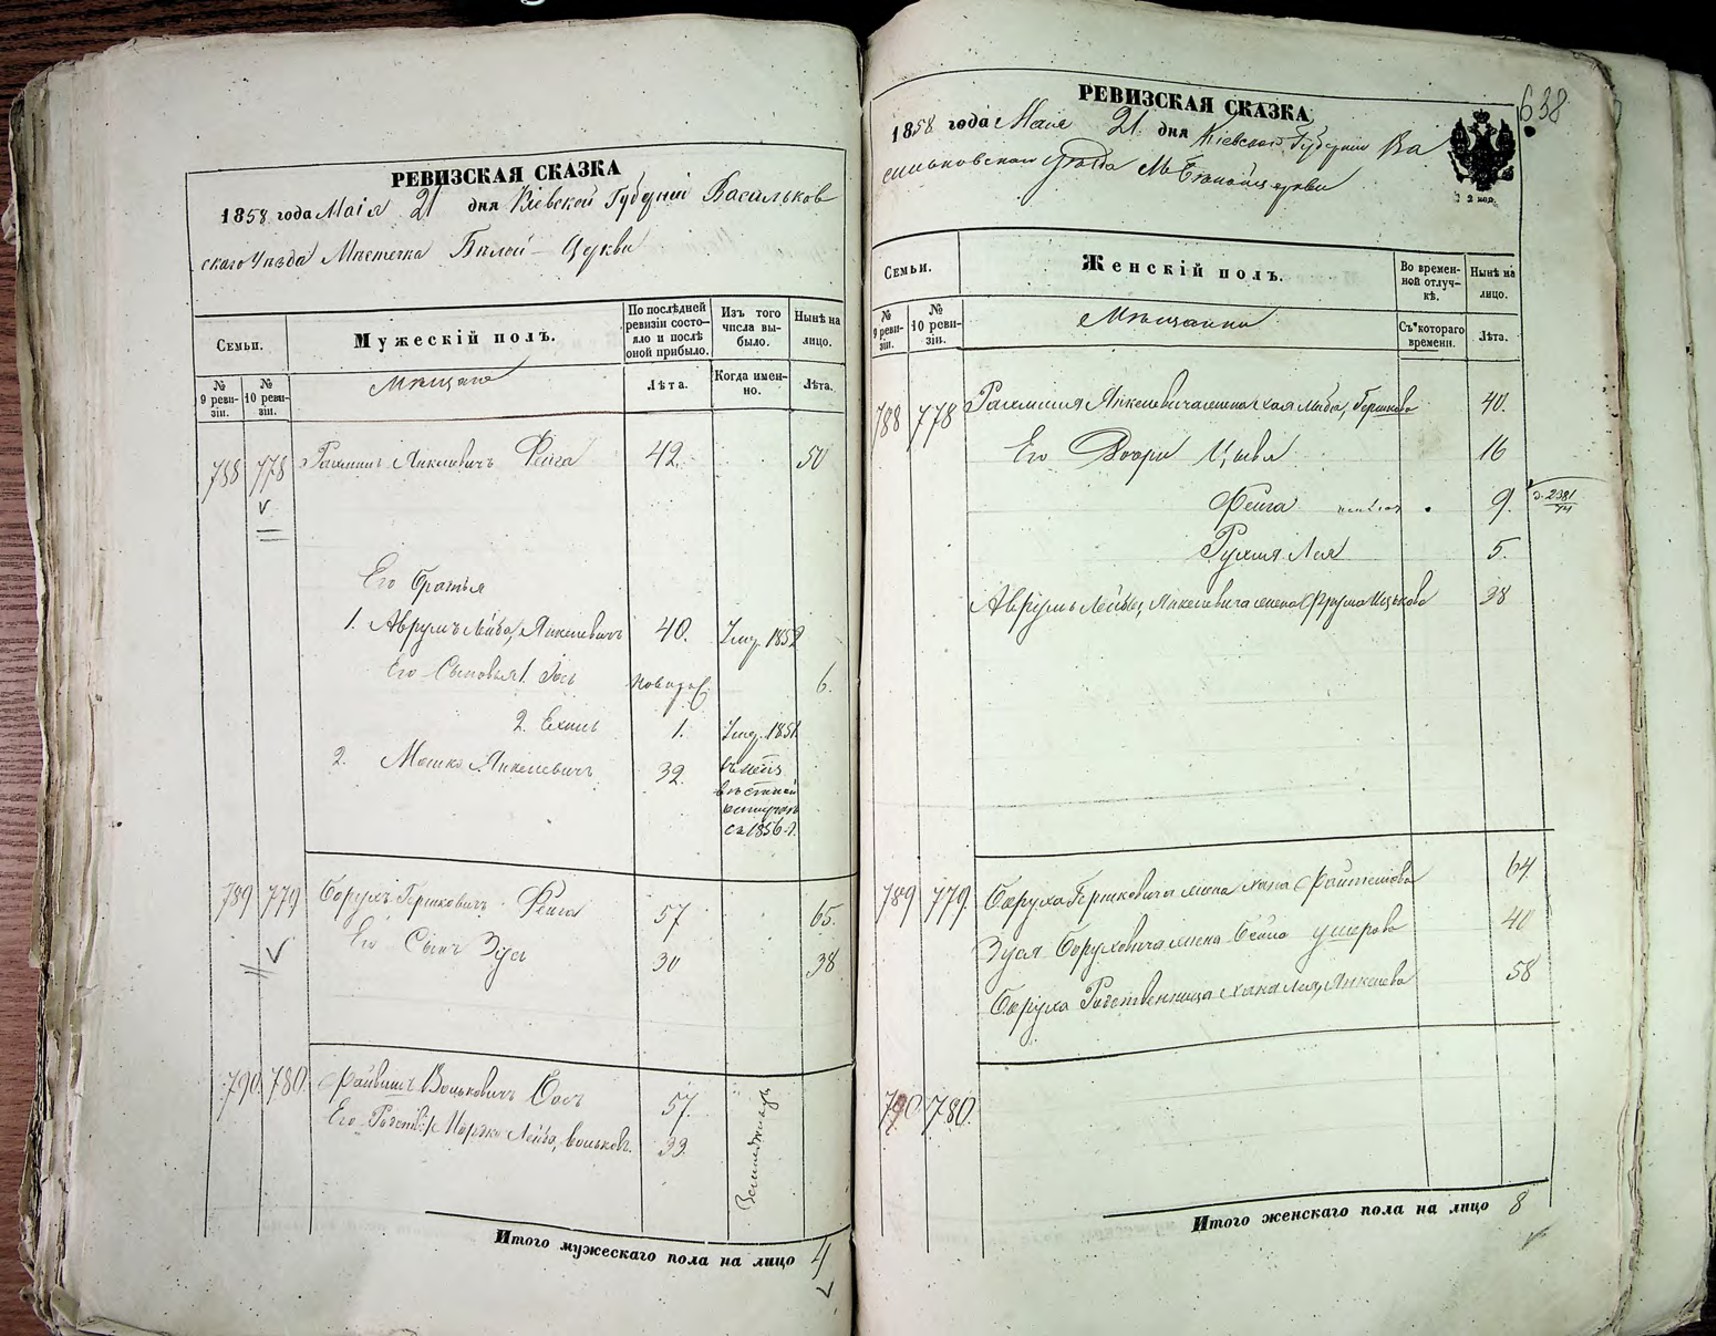 РЕВИЗСКАЯ СКАЗКА
1858 года Маія 21 дня Кіевской Губерніи Васильков
скаго Уѣзда Мѣстечка Бѣлой-Церкви
Семьи.
Мужескій полъ.
По послѣдней ревизіи состояло и послѣ оной прибыло.
Изъ того числа выбыло.
Нынѣ на лицо.
№ 9 ревизіи.
№ 10 ревизіи.
Мѣщане
Лѣта.
Когда именно.
Лѣта.
788 778 Янкелевичъ Фейга 42. 50
Его братья
1. Аврумъ Лейба, Янкелевичъ 40. Умер. 1852
Его Сыновья 1. Іось новорож. 6.
2. Ехиль 1. Умер. 1851
2. Мошко Янкелевичъ 32.
съ 1856 г.
789 779 Борухъ Гершковичъ Фейга 57 65.
Его Сынъ Зусь 30 38
790. 780. Файвишъ Вольковичъ 57.
Его Родств. Мордко Лейба, Вольков. 33.
Итого мужескаго пола на лицо 4
638
РЕВИЗСКАЯ СКАЗКА
1858 года Маія 21 дня Кіевской Губерніи Ва
сильковскаго уѣзда М. Бѣлой церкви
Семьи.
Женскій полъ.
Во временной отлучкѣ.
Нынѣ на лицо.
№ 9 ревизіи.
№ 10 ревизіи.
Мѣщанки
Съ котораго времени.
Лѣта.
788 778 Янкелевича жена Хая Либа, Гершкова 40.
Его Дочери Цывья 16
Фейга 9.
Рухля Лея 5.
Аврумъ Лейбы, Янкелевича жена Фрума Ицькова 38
789 779. Боруха Гершковича жена Хана 64
Зуся Боруховича жена Бейла 40
Боруха Родственница Хана Лея, Янкелева 58
790 780.
Итого женскаго пола на лицо 8